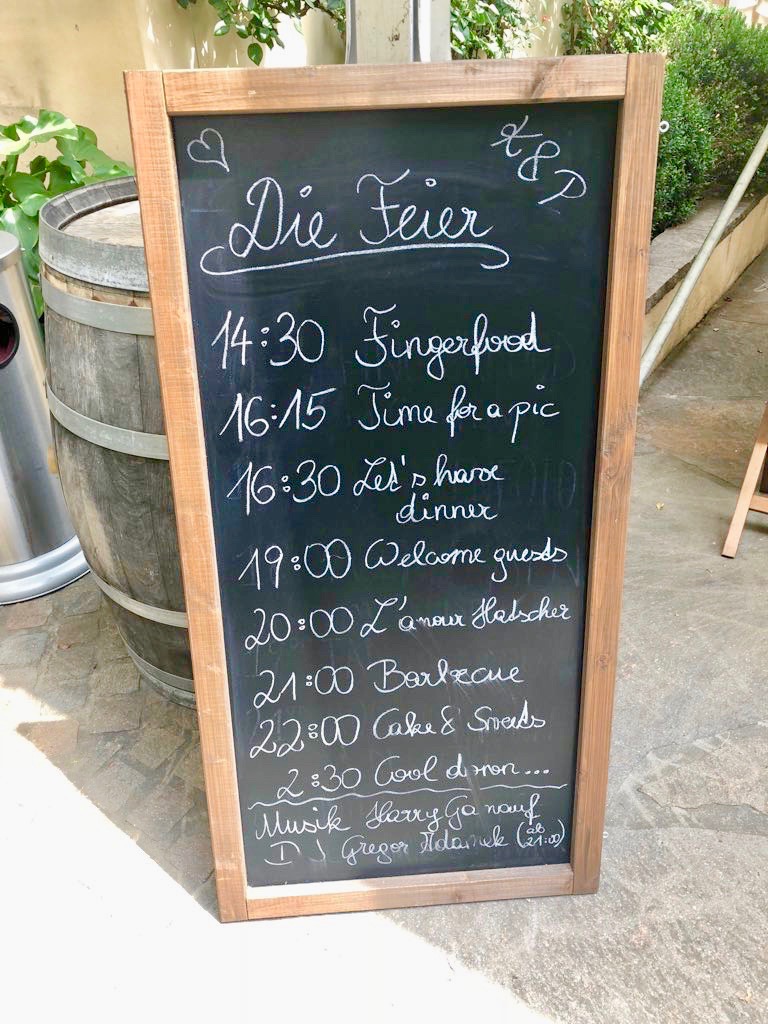 K & P
Die Feier
14:30 Fingerfood
16:15 Time for a pic
16:30 Let's have
dinner
19:00 Welcome guests
20:00 L'amour Hatscher
21:00 Barbecue
22:00 Cake & Sweets
2:30 Cool down...
Musik Harry Ganauf
DJ Gregor Adamek (ab 21:00)